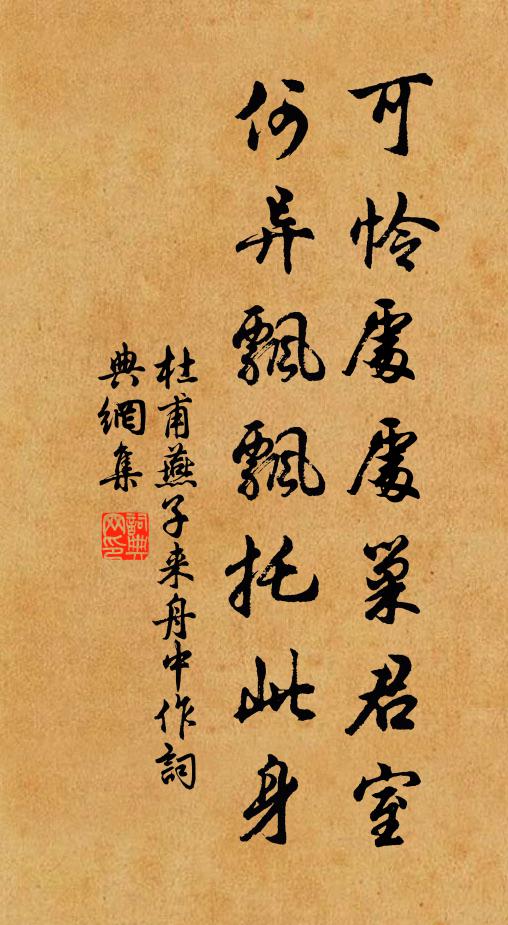 可怜處處巢君室
何异飄飄托此身
杜甫燕子来舟中作詞
典網集
詞典
网印